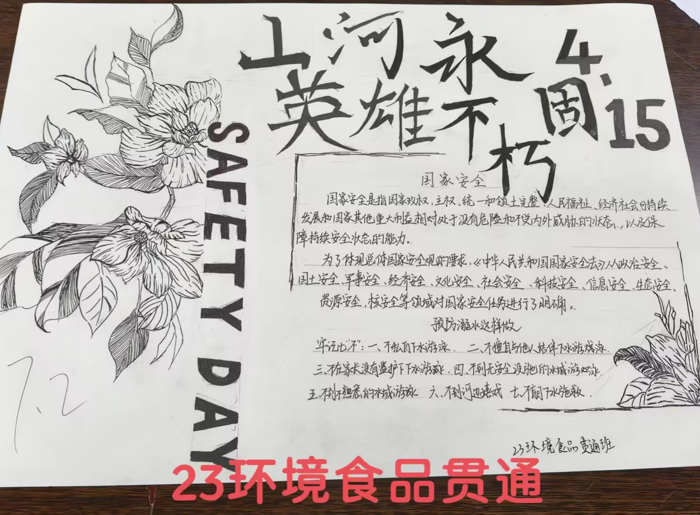 山河永固
英雄不朽
4.15
SAFETY DAY
国家安全
国家安全是指国家政权、主权、统一和领土完整、人民福祉、经济社会可持续
发展和国家其他重大利益相对处于没有危险和不受内外威胁的状态,以及保
障持续安全状态的能力。
为了体现总体国家安全观的要求,《中华人民共和国国家安全法》从政治安全、
国土安全、军事安全、经济安全、文化安全、社会安全、科技安全、信息安全、生态安全、
资源安全、核安全等领域对国家安全任务进行了明确。
预防溺水这样做
牢记七"不":一、不私自下水游泳、二、不擅自与他人结伴下水游戏泳
三、不在家长没有监护下下水游泳、四、不到无安全设施的水域游泳
五、不到不熟悉的水域游泳 六、不到河边嬉戏 七、不盲目下水施救
7.2
23环境食品贯通班
23环境食品贯通